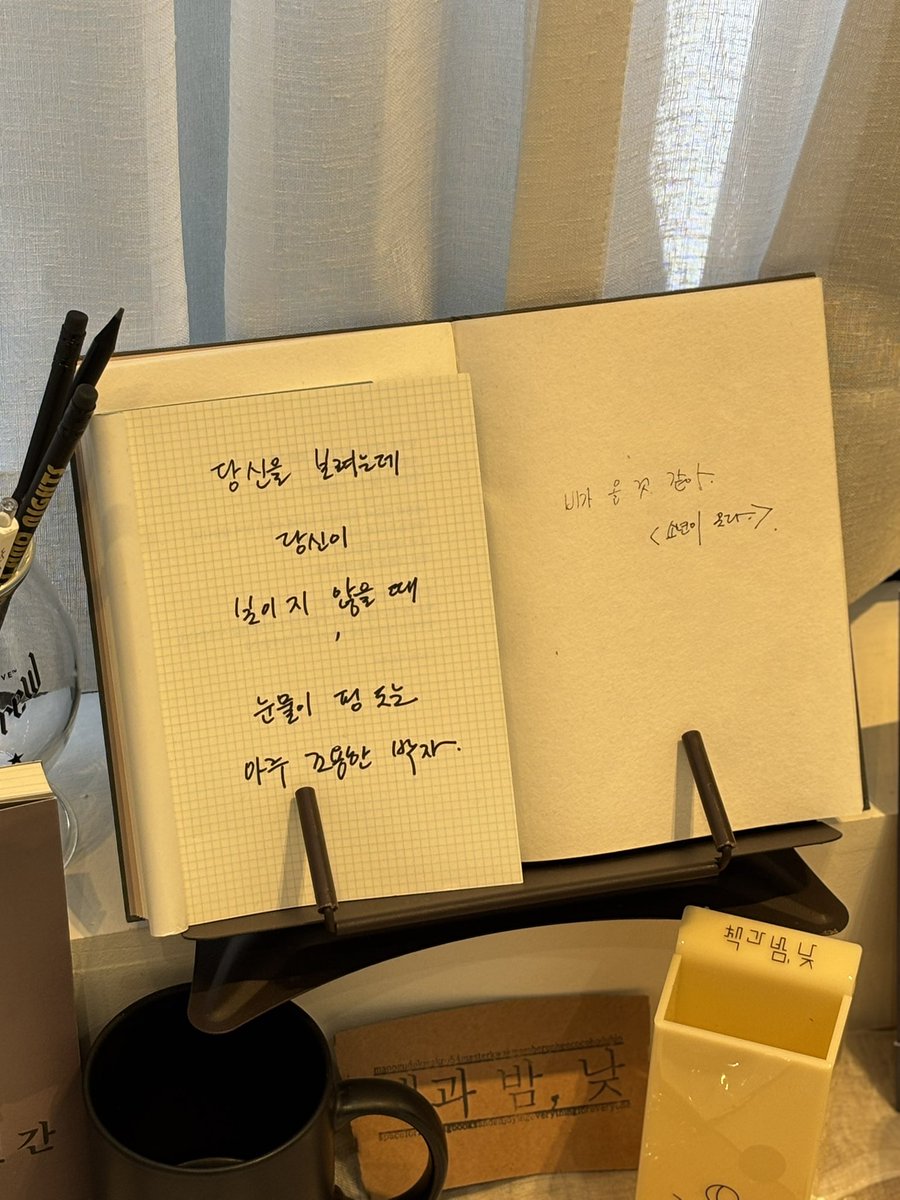 당신을 보려는데
당신이
보이지 않을 때,
눈물이 핑 도는
아주 조용한 박자.
비가 올 것 같아.
<소년이 온다.>.
NIGHTS
책과 밤, 낮
과 밤, 낮
간